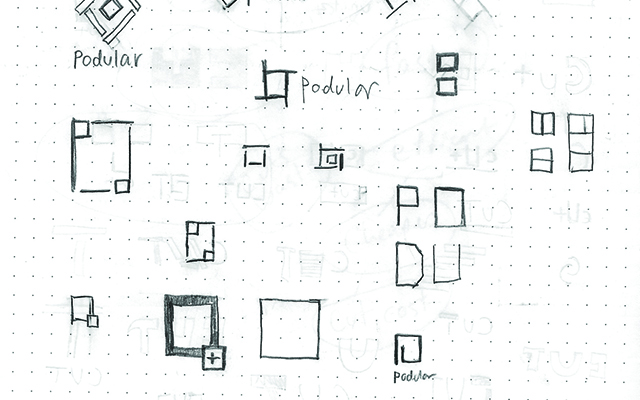 Podular
Podular
PO
DU
Podular